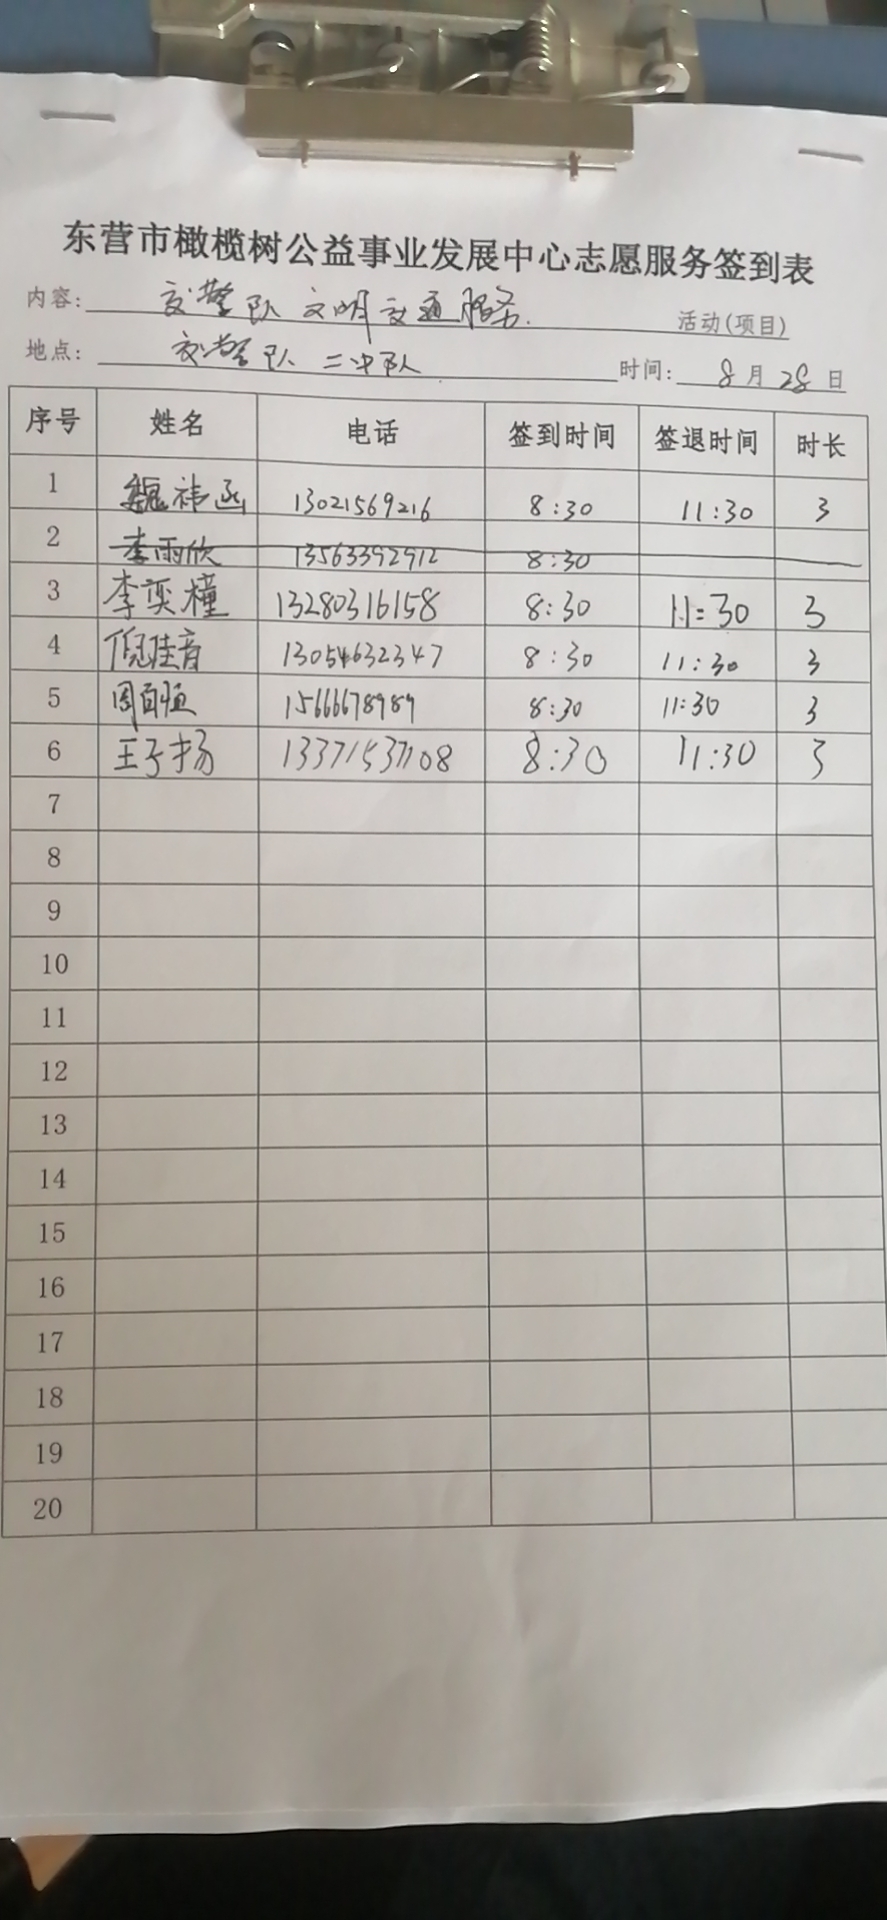 东营市橄榄树公益事业发展中心志愿服务签到表
内容: 交警队文明交通服务. 活动(项目)
地点: 交警队二中队 时间: 8月28日
序号 姓名 电话 签到时间 签退时间 时长
1 魏祎函 13021569216 8:30 11:30 3
2 李雨欣 13563392912 8:30
3 李奕橦 13280316158 8:30 11:30 3
4 倪佳音 13054632347 8:30 11:30 3
5 周自恒 15666678989 8:30 11:30 3
6 王子扬 13371537108 8:30 11:30 3
7
8
9
10
11
12
13
14
15
16
17
18
19
20